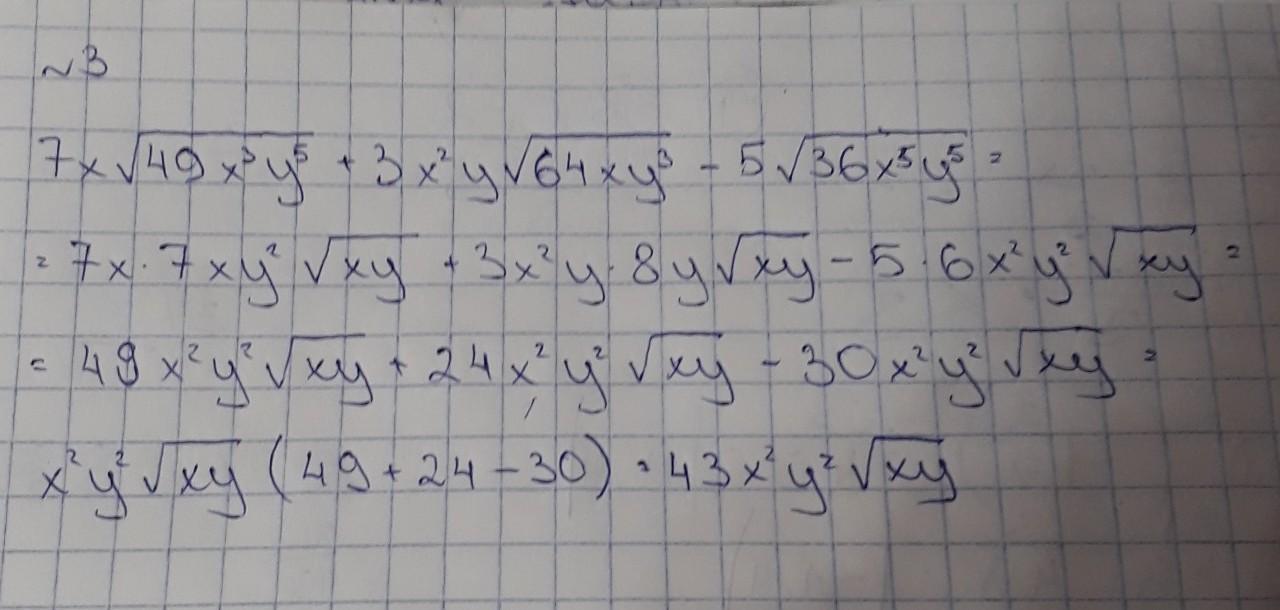 ~3
7x√(49x³y⁵) + 3x²y√(64xy³) - 5√(36x⁵y⁵) =
= 7x·7xy²√(xy) + 3x²y·8y√(xy) - 5·6x²y²√(xy) =
= 49x²y²√(xy) + 24x²y²√(xy) - 30x²y²√(xy) =
x²y²√(xy) (49 + 24 - 30) = 43x²y²√(xy)